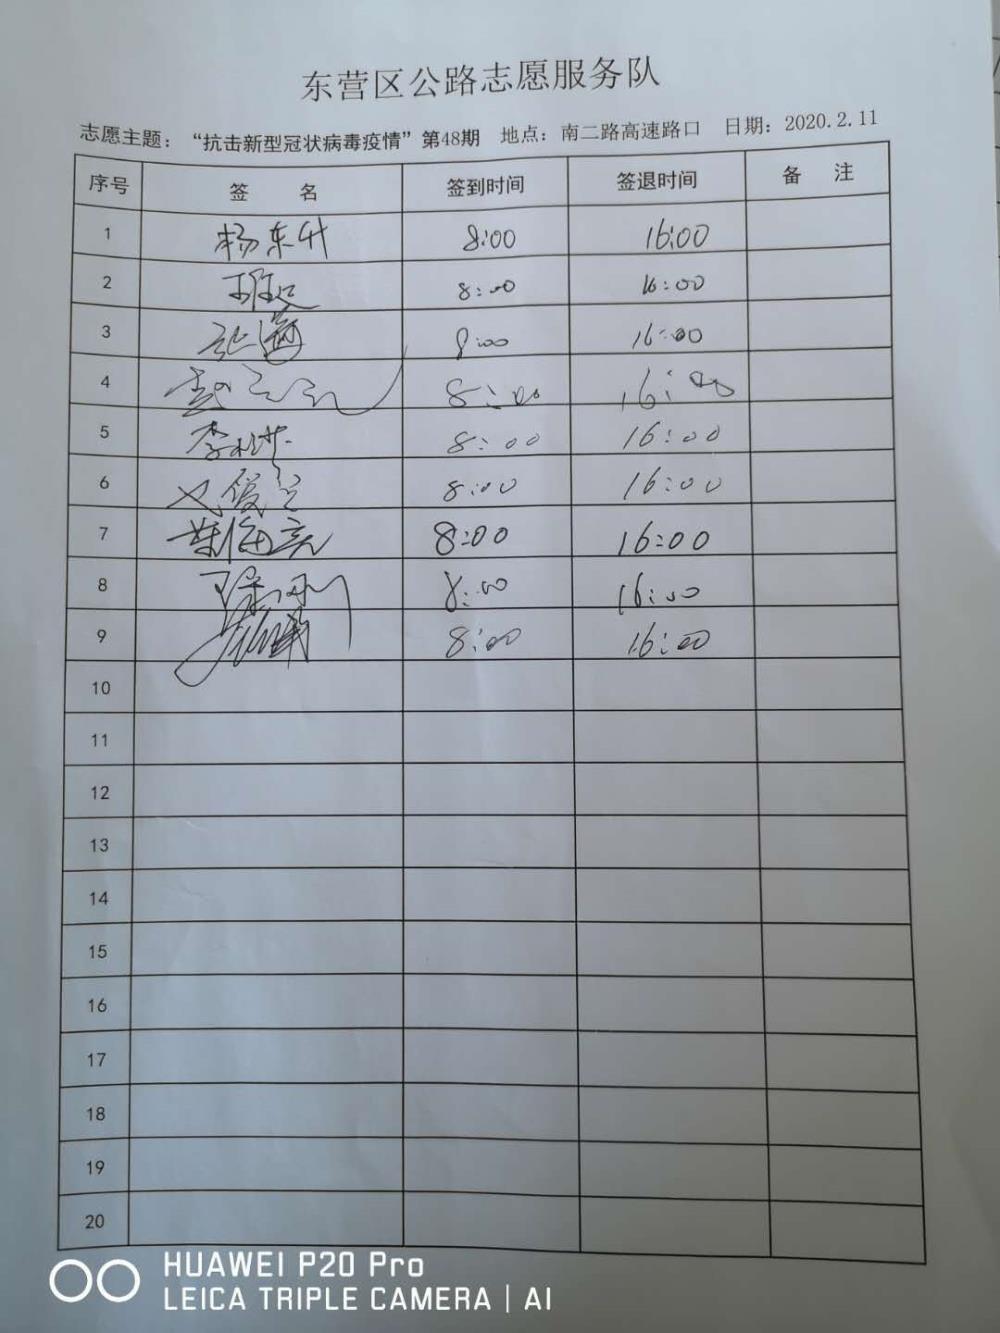 东营区公路志愿服务队
志愿主题：“抗击新型冠状病毒疫情”第48期 地点：南二路高速路口 日期：2020.2.11
序号 签 名 签到时间 签退时间 备 注
1 杨东升 8:00 16:00
2 8:00 16:00
3 张海 8:00 16:00
4 8:00 16:00
5 李 8:00 16:00
6 8:00 16:00
7 海亮 8:00 16:00
8 8:00 16:00
9 8:00 16:00
10
11
12
13
14
15
16
17
18
19
20
HUAWEI P20 Pro
LEICA TRIPLE CAMERA | AI